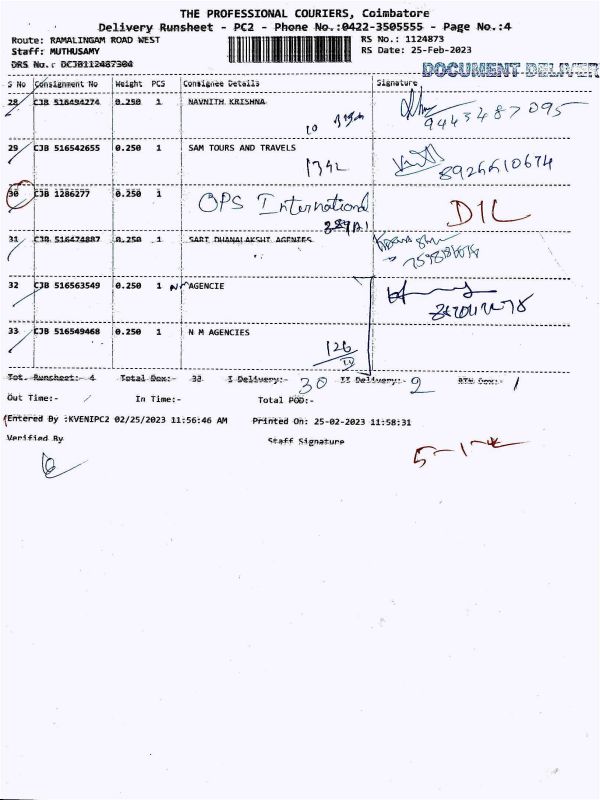 THE PROFESSIONAL COURIERS, Coimbatore
Delivery Runsheet - PC2 - Phone No.:0422-3505555 - Page No.:4
Route: RAMALINGAM ROAD WEST RS No.: 1124873
Staff: MUTHUSAMY RS Date: 25-Feb-2023
DRS No.: DCJB112487304
DOCUMENT DELIVER
S No Consignment No Weight PCS Consignee Details Signature
28 CJB 516494274 0.250 1 NAVNITH KRISHNA
10
9443487095
29 CJB 516542655 0.250 1 SAM TOURS AND TRAVELS
1342
8926610674
30 CJB 1286277 0.250 1 OPS International
D1L
31 CJB 516474887 0.250 1 SARI DHANALAKSHI AGENTES
32 CJB 516563549 0.250 1 AGENCIE
33 CJB 516549468 0.250 1 N M AGENCIES
126
Tot. Runsheet:- 4 Total Dox:- 33 I Delivery:- 30 II Delivery:- 2 RTN Dox:- 1
Out Time:- / In Time:- Total POD:-
Entered By :KVENIPC2 02/25/2023 11:56:46 AM Printed On: 25-02-2023 11:58:31
Verified By Staff Signature